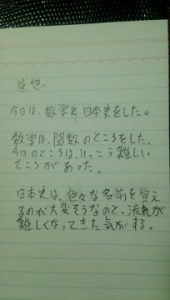 感想。
今日は、数学と日本史をした。
数学は、関数のところをした。
今日のところは、けっこう難しい
ところがあった。
日本史は、色々な名前を覚え
るのが大変そうなのと、流れが
難しくなってきた気がする。